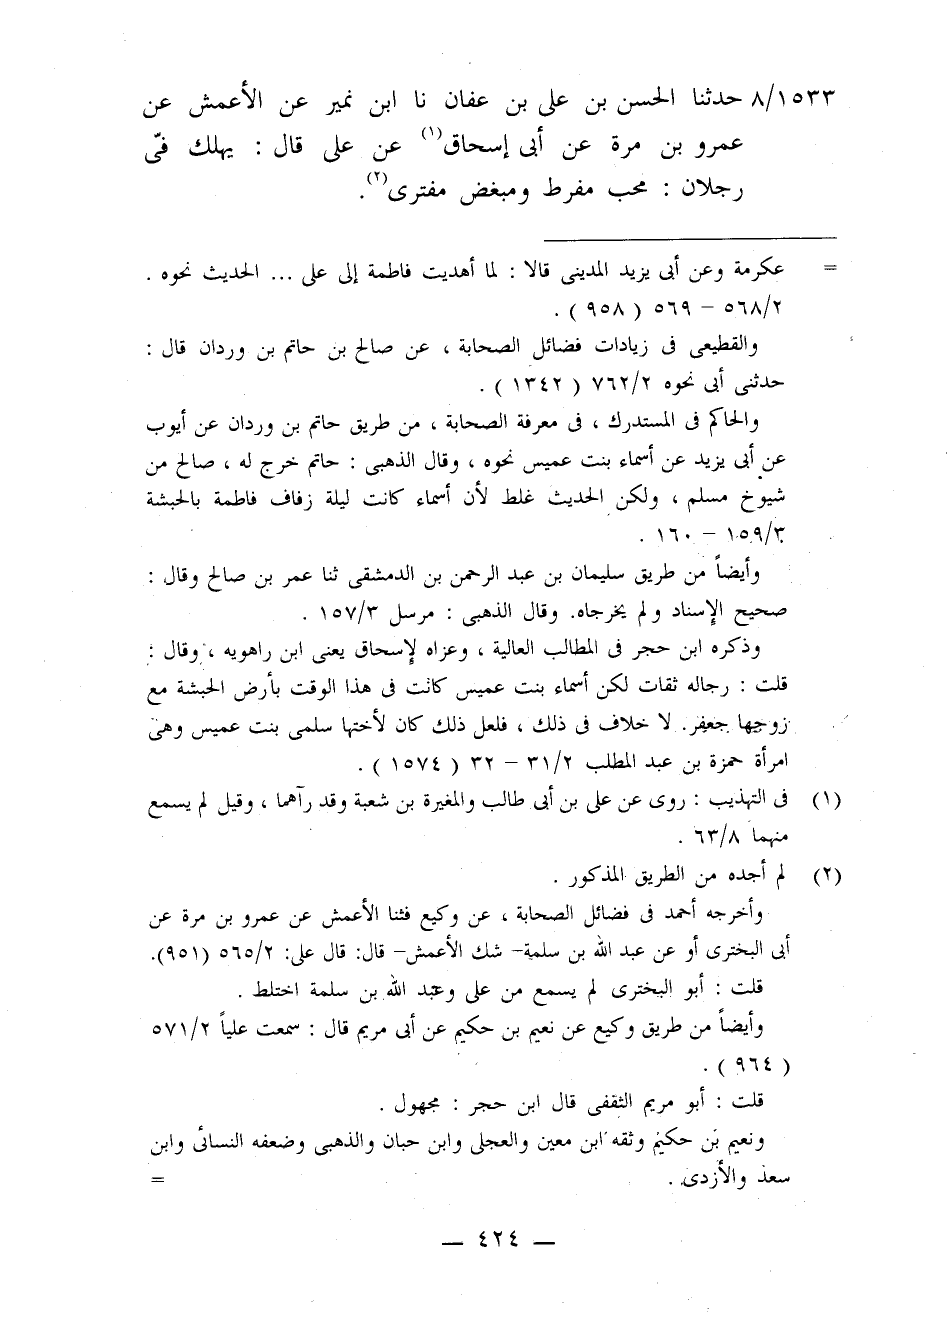 ٨/١٥٣٣ حدثنا الحسن بن على بن عفان نا ابن نمير عن الأعمش عن
عمرو بن مرة عن أبى إسحاق(١) عن على قال : يهلك فىّ
رجلان : محب مفرط ومبغض مفترى(٢).
= عكرمة وعن أبى يزيد المدينى قالا : لما أهديت فاطمة إلى على ... الحديث نحوه .
٥٦٨/٢ – ٥٦٩ ( ٩٥٨ ) .
والقطيعى فى زيادات فضائل الصحابة ، عن صالح بن حاتم بن وردان قال :
حدثنى أبى نحوه ٧٦٢/٢ ( ١٣٤٢ ) .
والحاكم فى المستدرك ، فى معرفة الصحابة ، من طريق حاتم بن وردان عن أيوب
عن أبى يزيد عن أسماء بنت عميس نحوه ، وقال الذهبى : حاتم خرج له ، صالح من
شيوخ مسلم ، ولكن الحديث غلط لأن أسماء كانت ليلة زفاف فاطمة بالحبشة
١٥٩/٣ – ١٦٠ .
وأيضاً من طريق سليمان بن عبد الرحمن بن الدمشقى ثنا عمر بن صالح وقال :
صحيح الإسناد ولم يخرجاه. وقال الذهبى : مرسل ١٥٧/٣ .
وذكره ابن حجر فى المطالب العالية ، وعزاه لإسحاق يعنى ابن راهويه ، وقال :
قلت : رجاله ثقات لكن أسماء بنت عميس كانت فى هذا الوقت بأرض الحبشة مع
زوجها جعفر. لا خلاف فى ذلك ، فلعل ذلك كان لأختها سلمى بنت عميس وهى
امرأة حمزة بن عبد المطلب ٣١/٢ – ٣٢ ( ١٥٧٤ ) .
(١) فى التهذيب : روى عن على بن أبى طالب والمغيرة بن شعبة وقد رآهما ، وقيل لم يسمع
منهما ٦٣/٨ .
(٢) لم أجده من الطريق المذكور .
وأخرجه أحمد فى فضائل الصحابة ، عن وكيع فثنا الأعمش عن عمرو بن مرة عن
أبى البخترى أو عن عبد الله بن سلمة– شك الأعمش– قال: قال على: ٥٦٥/٢ (٩٥١).
قلت : أبو البخترى لم يسمع من على وعبد الله بن سلمة اختلط .
وأيضاً من طريق وكيع عن نعيم بن حكيم عن أبى مريم قال : سمعت علياً ٥٧١/٢
( ٩٦٤ ) .
قلت : أبو مريم الثقفى قال ابن حجر : مجهول .
ونعيم بن حكيم وثقه ابن معين والعجلى وابن حبان والذهبى وضعفه النسائى وابن
سعد والأزدى . =
— ٤٢٤ —